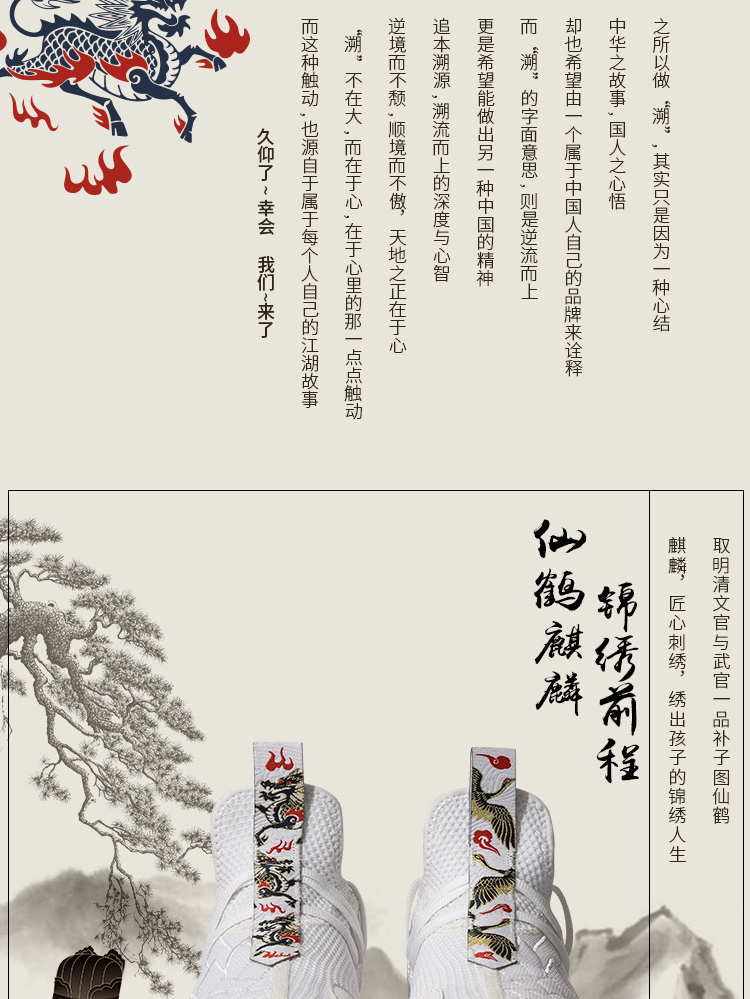 之所以做“溯”，其实只是因为一种心结
中华之故事，国人之心悟
却也希望由一个属于中国人自己的品牌来诠释
而“溯”的字面意思，则是逆流而上
更是希望能做出另一种中国的精神
追本溯源，溯流而上的深度与心智
逆境而不颓，顺境而不傲，天地之正在于心
“溯”不在大，而在于心，在于心里的那一点点触动
而这种触动，也源自于属于每个人自己的江湖故事
久仰了~幸会 我们~来了
取明清文官与武官一品补子图仙鹤
麒麟，匠心刺绣，绣出孩子的锦绣人生
锦绣前程
仙鹤麒麟